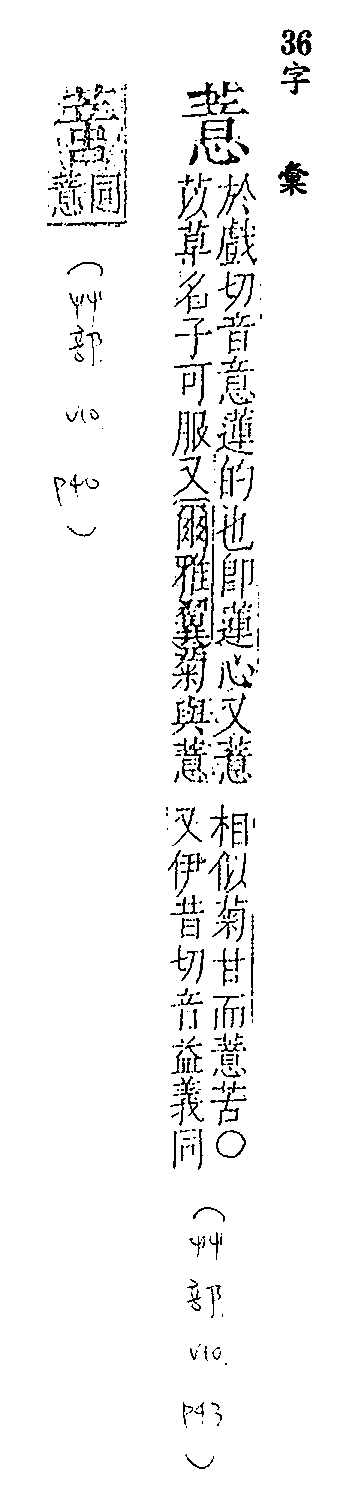 36字彙
薏
於戲切音意蓮的也卽蓮心又薏
苡草名子可服又爾雅翼菊與薏
相似菊甘而薏苦〇
又伊昔切音益義同
(艸部 v10. p43)
同
薏
(艸部 v10. p40)